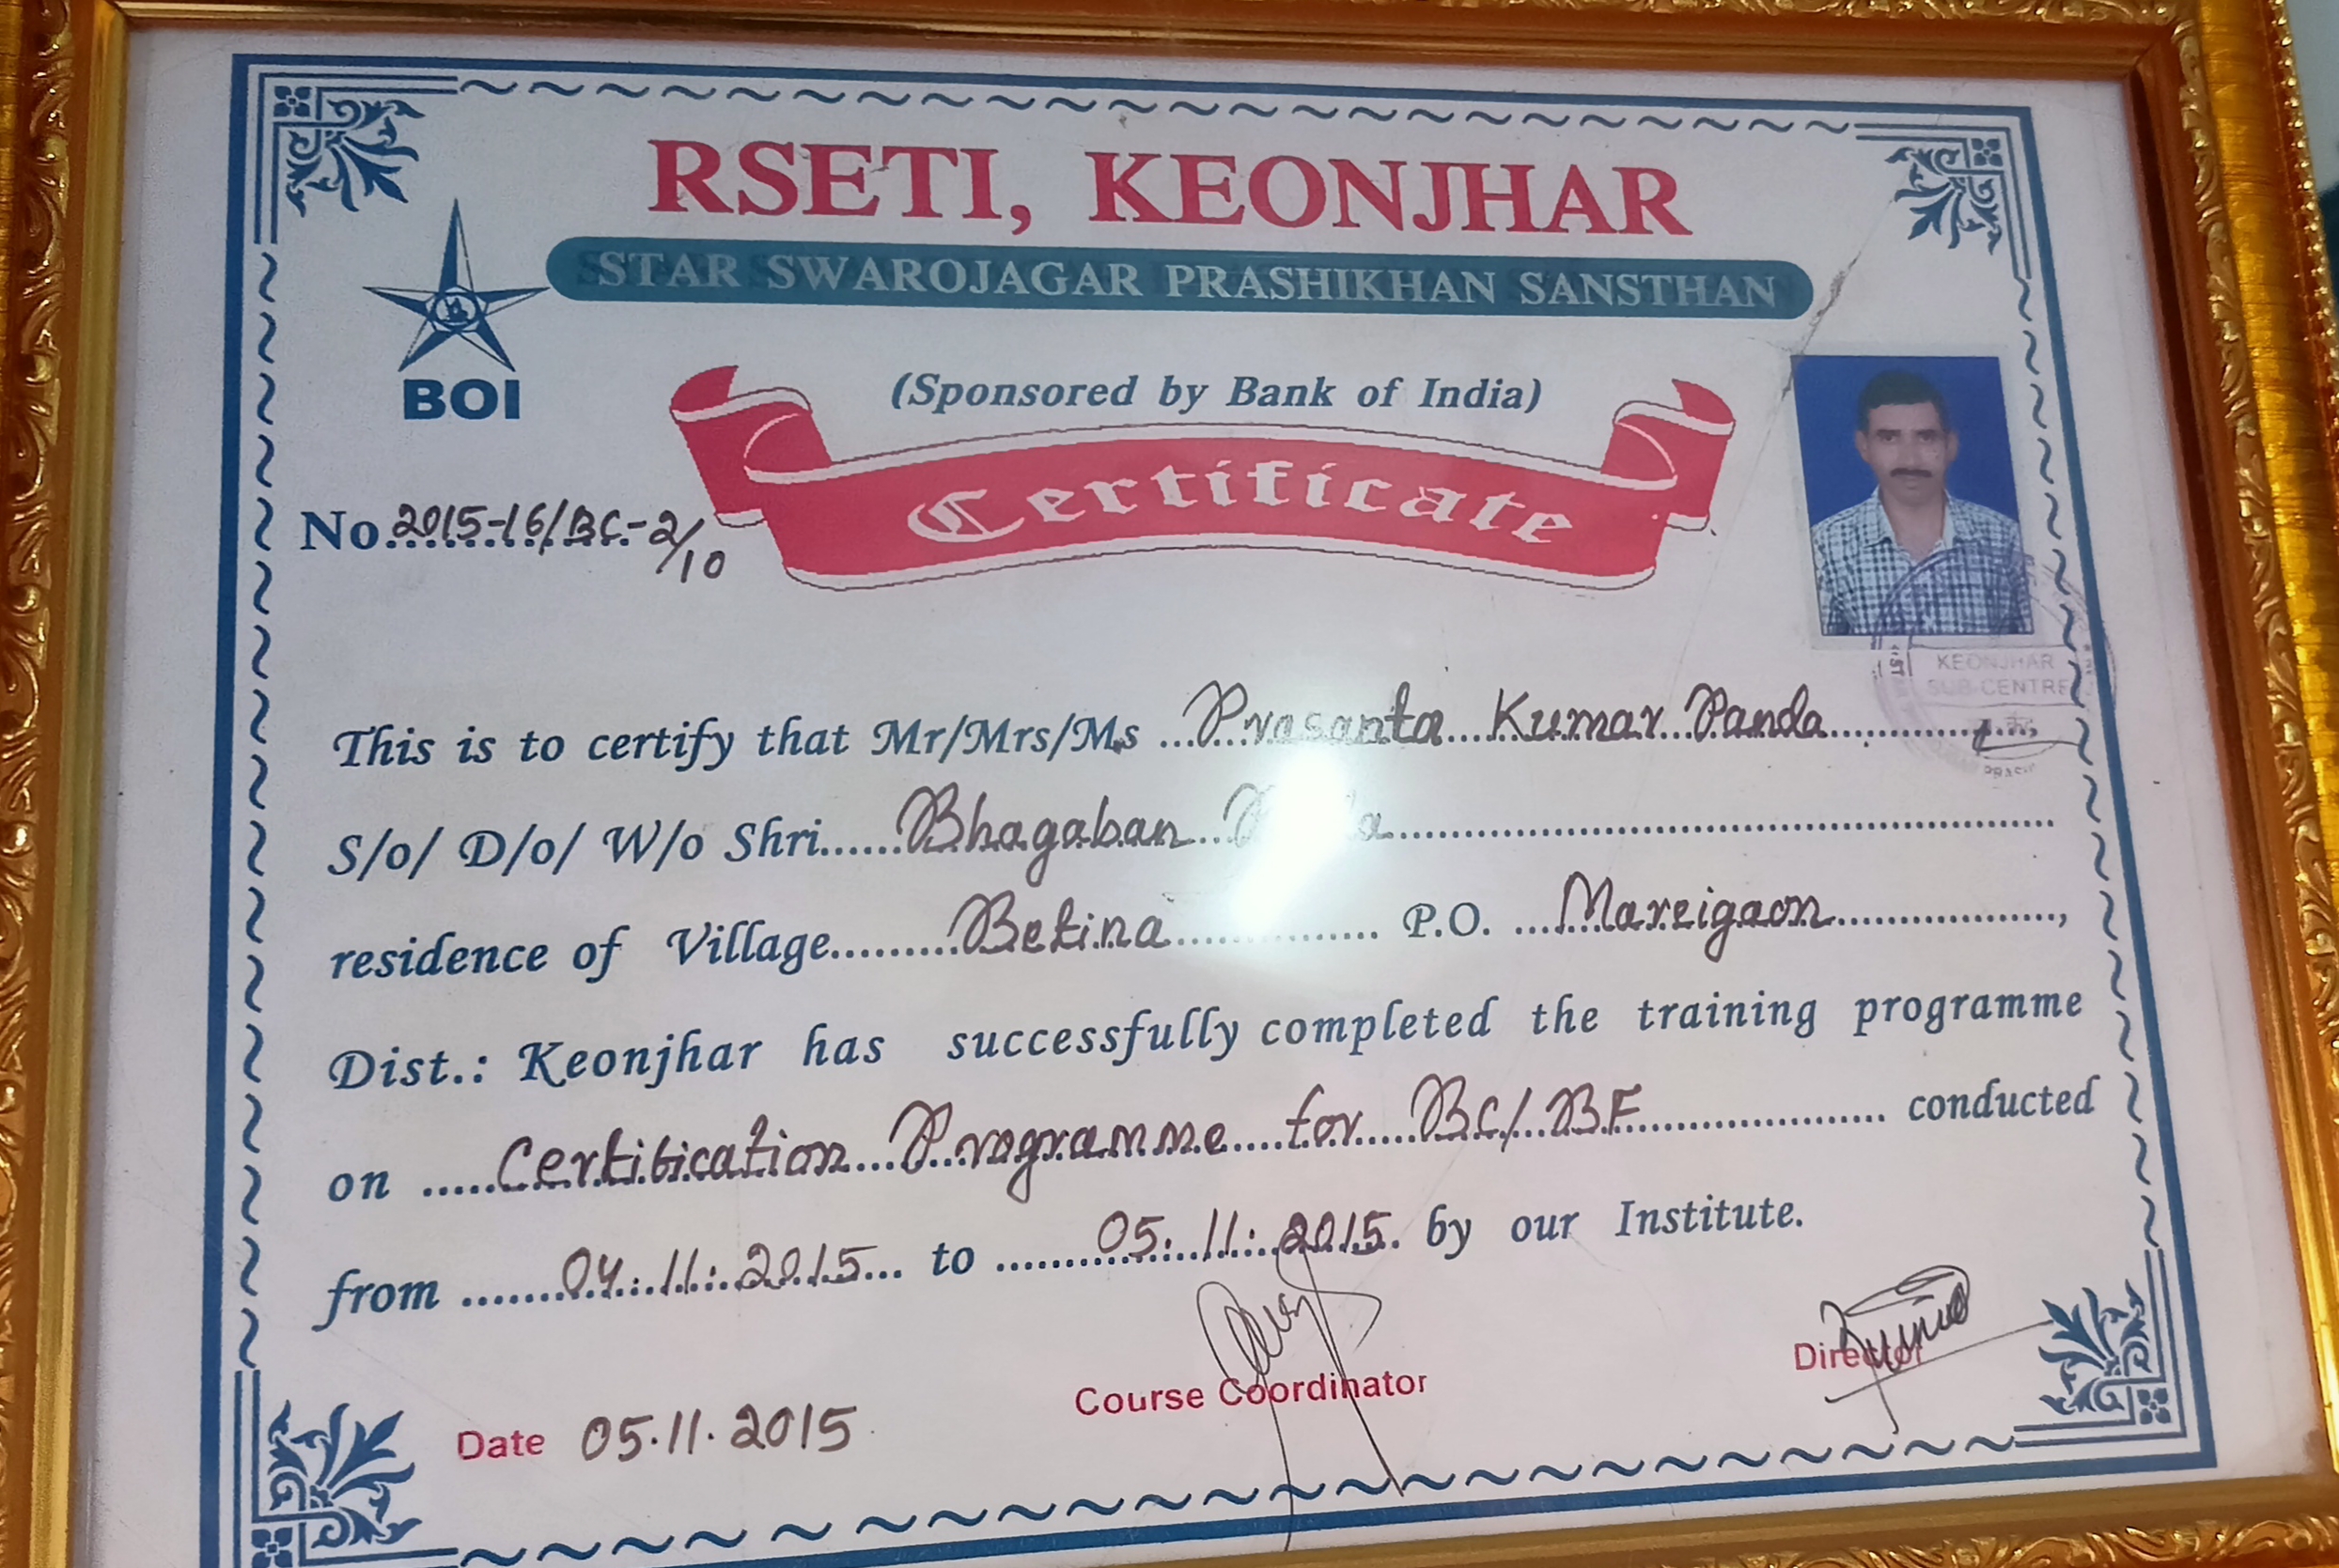 RSETI, KEONJHAR
STAR SWAROJAGAR PRASHIKHAN SANSTHAN
BOI
(Sponsored by Bank of India)
Certificate
No. 2015-16/BC-2/10
KEONJHAR
SUB-CENTRE
This is to certify that Mr/Mrs/Ms Prasanta Kumar Panda
S/o/ D/o/ W/o Shri Bhagaban
residence of Village Betina P.O. Mareigaon,
Dist.: Keonjhar has successfully completed the training programme
on Certification Programme for BC/BF conducted
from 04.11.2015 to 05.11.2015 by our Institute.
Date 05.11.2015
Course Coordinator
Director